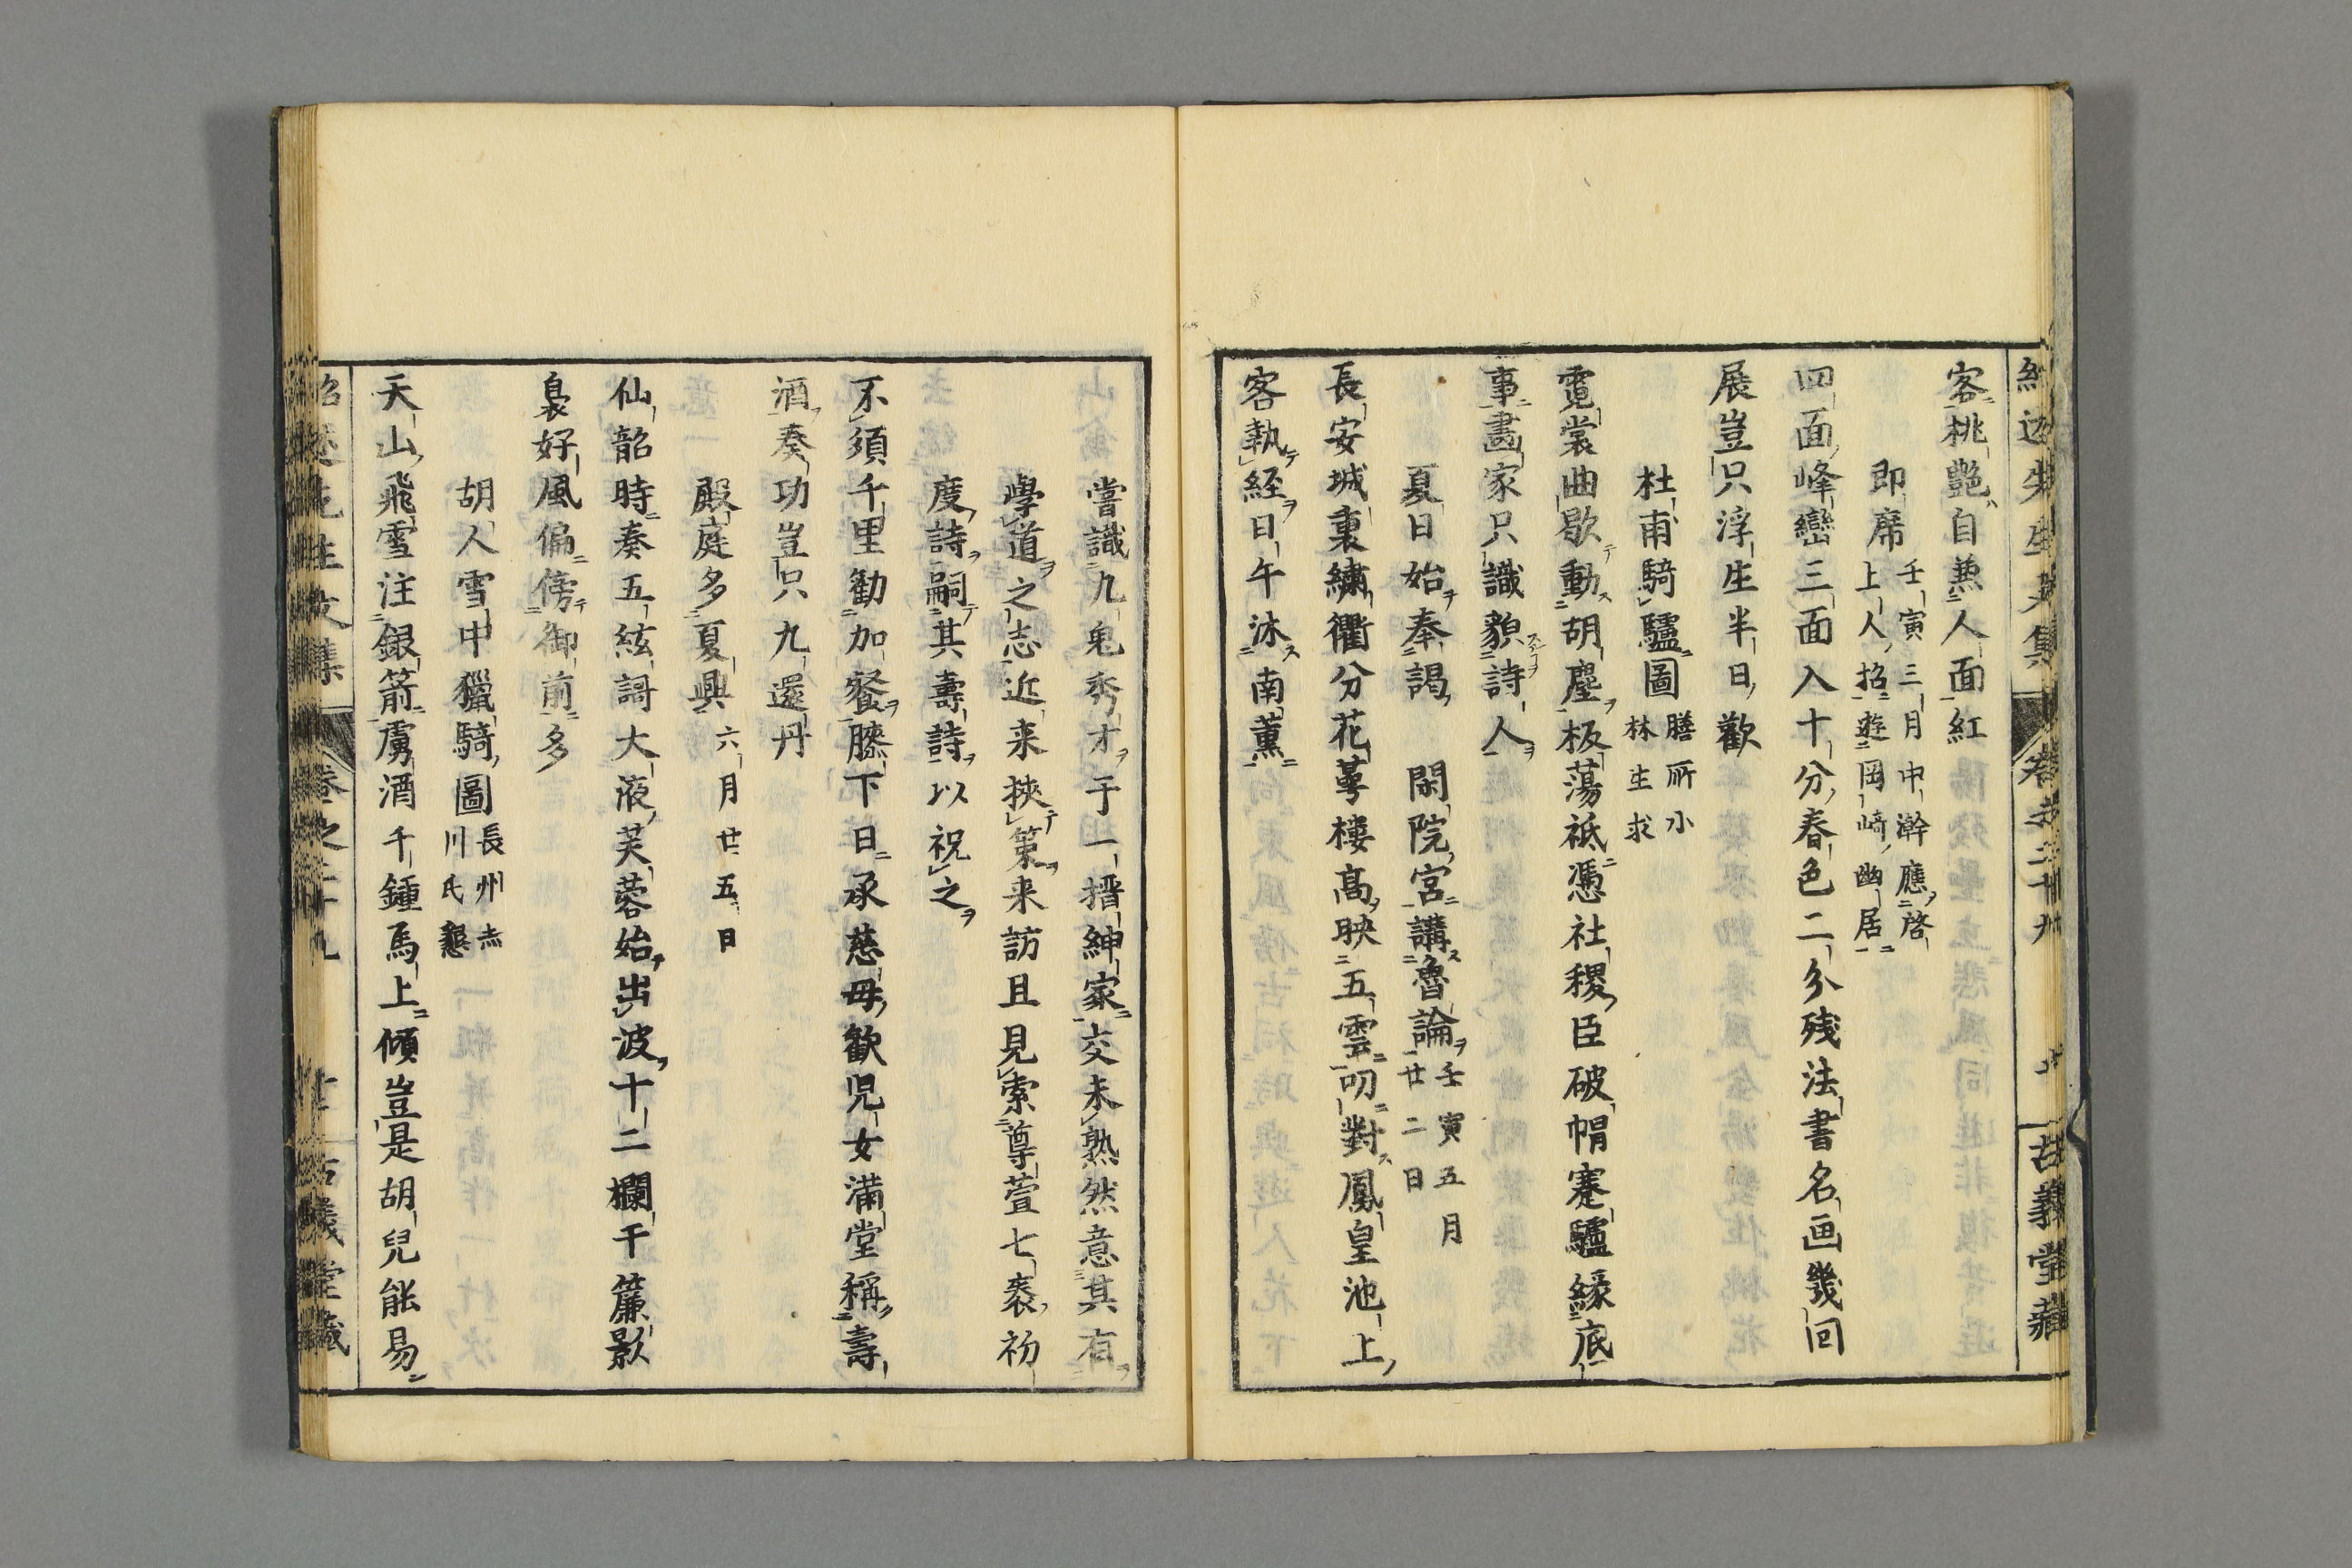 客桃艶自兼人面紅
即席 壬寅三月中澣應啓
上人招遊岡崎幽居
四面峰巒三面入十分春色二分残法書名画幾回
展豈只浮生半日歡
杜甫騎驢圖 膳所小
林生求
霓裳曲歇動胡塵板蕩祗憑社稷臣破帽蹇驢緣底
事畵家只識貌詩人
夏日始奉謁 閑院宮講魯論 壬寅五月
廿二日
長安城裏繡衢分花萼樓高映五雲叨對鳳皇池上
客執經日午沐南薫
嘗識九鬼秀才于一搢紳家交未熟然意其有
學道之志近来挾策来訪且見索尊萱七袠初
度詩嗣其壽詩以祝之
不須千里勸加餐膝下日承慈母歓児女満堂稱壽
酒奏功豈只九還丹
殿庭多夏興 六月廿五日
仙韶時奏五絃謌大液芙蓉始出波十二欄干簾影
裊好風偏傍御前多
胡人雪中獵騎圖 長州志
川氏懇
天山飛雪注銀箭虜酒千鍾馬上傾豈是胡兒能易
紹述先生文集 卷之二十九 古義堂藏